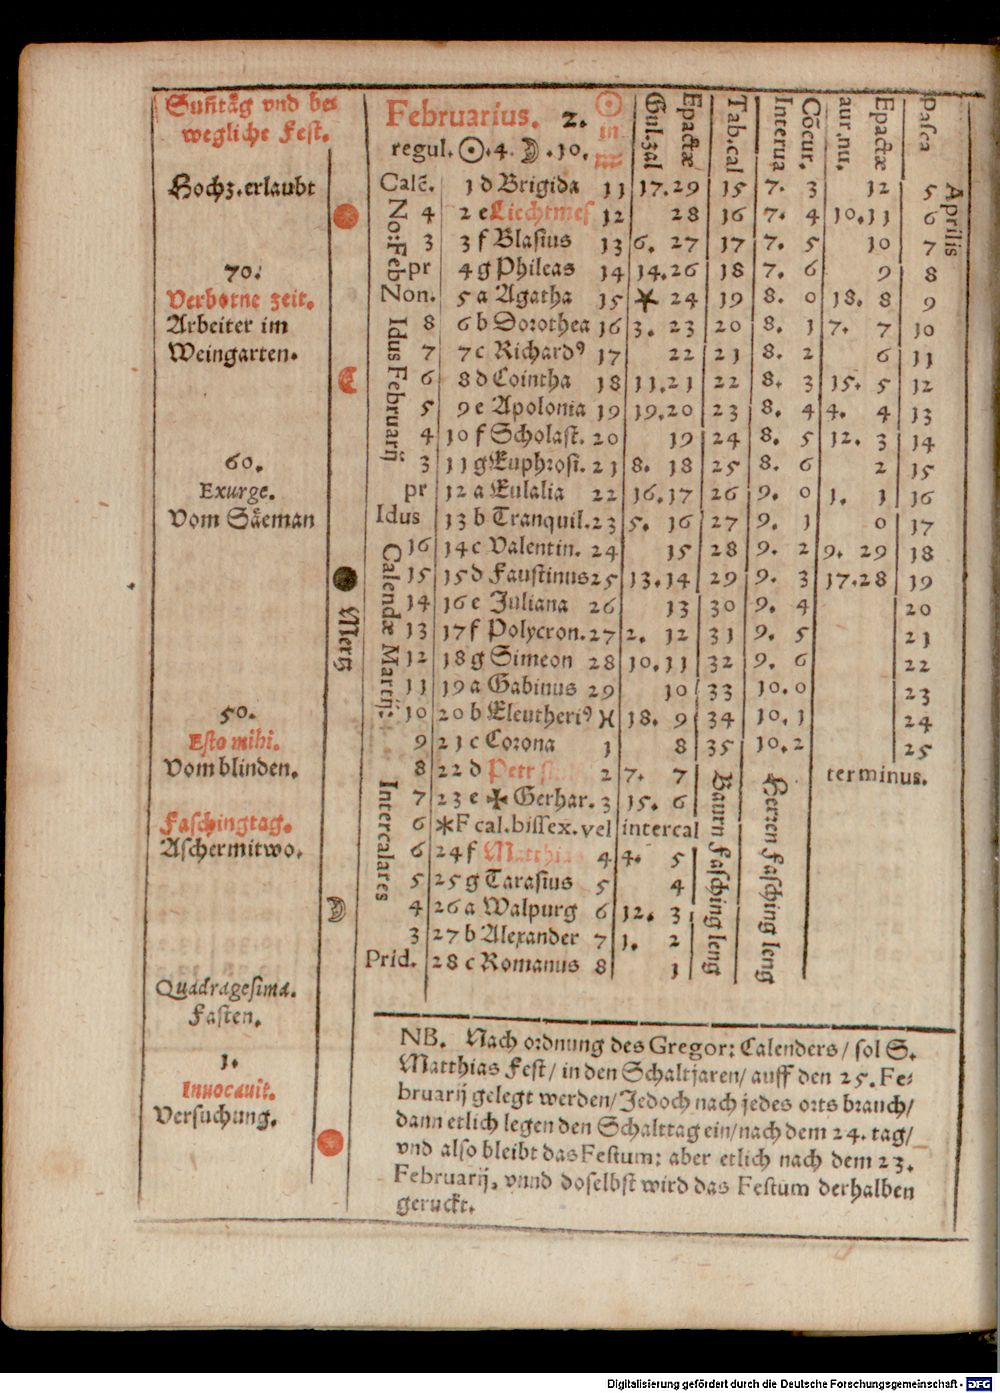 Suñtåg vnd be⸗
wegliche Fest.
Hochz. erlaubt
70.
Verbotne zeit.
Arbeiter im
Weingarten.
60.
Exurge.
Vom Såeman
50.
Esto mihi.
Vom blinden.
Faschingtag.
Aschermitwo.
Quadragesima.
Fasten.
1.
Inuocauit.
Versuchung.
Mertz
Februarius. 2. ☉ in ♒
regul. ☉.4. ☽.10.
Gul.zal
Epactæ
Tab.cal
Interua
Cõcur.
aur.nu.
Epactæ
Pasca
Aprilis
No: Feb
Idus Februarij
Calendæ Martij:
Intercalares
Calẽ. 1 d Brigida 11 17. 29 15 7. 3 12 5
4 2 e Liechtmes 12 28 16 7. 4 10. 11 6
3 3 f Blasius 13 6. 27 17 7. 5 10 7
pr 4 g Phileas 14 14. 26 18 7. 6 9 8
Non. 5 a Agatha 15 * 24 19 8. 0 18. 8 9
8 6 b Dorothea 16 3. 23 20 8. 1 7. 7 10
7 7 c Richardꝰ 17 22 21 8. 2 6 11
6 8 d Cointha 18 11. 21 22 8. 3 15. 5 12
5 9 e Apolonia 19 19. 20 23 8. 4 4. 4 13
4 10 f Scholast. 20 19 24 8. 5 12. 3 14
3 11 g Euphrosi. 21 8. 18 25 8. 6 2 15
pr 12 a Eulalia 22 16. 17 26 9. 0 1. 1 16
Idus 13 b Tranquil. 23 5. 16 27 9. 1 0 17
16 14 c Valentin. 24 15 28 9. 2 9. 29 18
15 15 d Faustinus 25 13. 14 29 9. 3 17. 28 19
14 16 e Juliana 26 13 30 9. 4 20
13 17 f Polycron. 27 2. 12 31 9. 5 21
12 18 g Simeon 28 10. 11 32 9. 6 22
11 19 a Gabinus 29 10 33 10. 0 23
10 20 b Eleutheriꝰ ♓ 18. 9 34 10. 1 24
9 21 c Corona 1 8 35 10. 2 25
8 22 d Petr 2 7. 7 terminus.
7 23 e ✠ Gerhar. 3 15. 6
6 *F cal. bissex. vel intercal
6 24 f Matthias 4 4. 5
5 25 g Tarasius 5 4
4 26 a Walpurg 6 12. 3
3 27 b Alexander 7 1. 2
Prid. 28 c Romanus 8 1
Baurn Fasching leng
Herren Fasching leng
NB. Nach ordnung des Gregor: Calenders/ sol S.
Matthias Fest/ in den Schaltjaren/ auff den 25. Fe⸗
bruarij gelegt werden/ Jedoch nach jedes orts brauch/
dann etlich legen den Schalttag ein/ nach dem 24. tag/
vnd also bleibt das Festum: aber etlich nach dem 23.
Februarij, vnnd doselbst wird das Festum derhalben
geruckt.
Digitalisierung gefördert durch die Deutsche Forschungsgemeinschaft - DFG